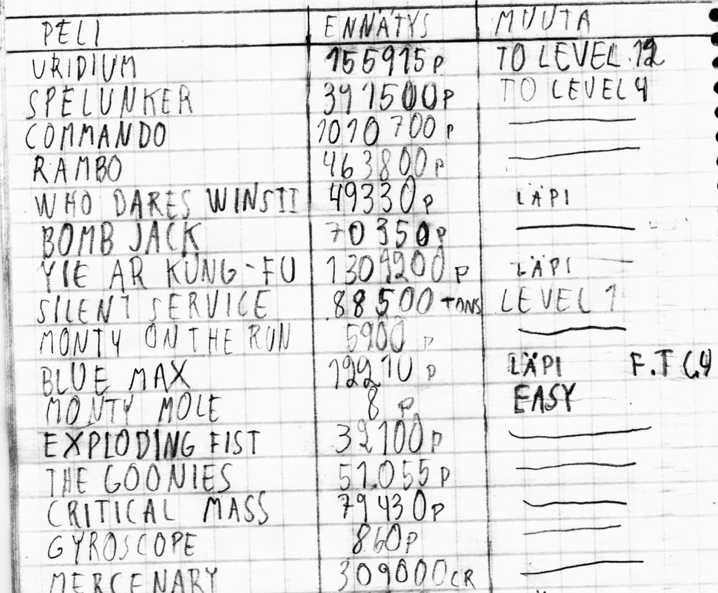 PELI ENNÄTYS MUUTA
URIDIUM 155915P TO LEVEL 12
SPELUNKER 391500P TO LEVEL 4
COMMANDO 1010700P
RAMBO 463800P
WHO DARES WINS II 49330P LÄPI
BOMB JACK 70350P
YIE AR KUNG-FU 1309200P LÄPI
SILENT SERVICE 88500 TONS LEVEL 1
MONTY ON THE RUN 5900 P
BLUE MAX 12210 P LÄPI F.T C.4
MONTY MOLE 8 P EASY
EXPLODING FIST 32100P
THE GOONIES 51.055P
CRITICAL MASS 79430P
GYROSCOPE 860P
MERCENARY 309000CR